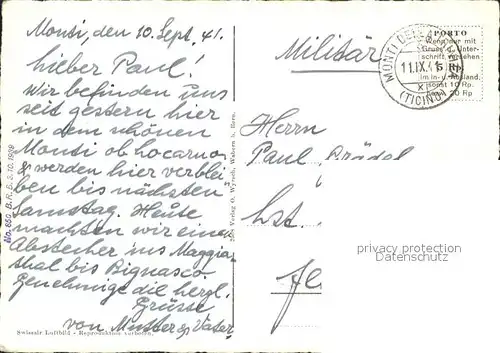 Monti, den 10. Sept. 41.
Lieber Paul!
Wir befinden uns
seit gestern hier
in dem schönen
Monti ob Locarno
& werden hier verblei-
ben bis nächsten
Samstag. Heute
machten wir einen
Abstecher ins Maggia-
thal bis Bignasco
Genehmige die herzl.
Grüsse
von Mutter & Vater
Swissair Luftbild - Reproduktion verboten.
No. 650 B. R. B. 3. 10. 1939
Verlag O. Wyrsch, Wabern b. Bern.
Militär
PORTO
Wenn nur mit
Gruss u. Unter-
schrift versehen
5 Rp.
Im In- u. Ausland.
sonst 10 Rp.
20 Rp
MONTI DELLA
11.IX.41
X
(TICINO)
Herrn
Paul
Hst.
privacy protection
Datenschutz